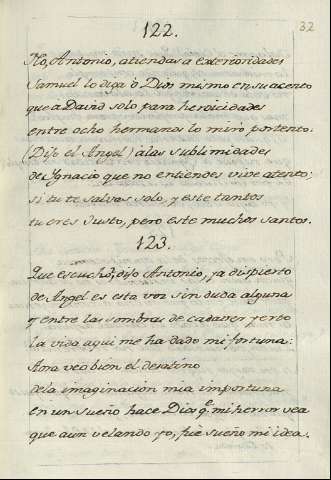 32
122.
No, Antonio, atiendas a exterioridades
Samuel lo diga ò Dios mismo en su acento
que a David solo para heroicidades
entre ocho hermanos lo miró portento.
(Dijo el Angel) a las sublimidades
de Ignacio que no entiendes vive atento;
si tu te salvas solo, y este tantos
tu eres Justo, pero este muchos santos.
123.
Que escuchó, dijo Antonio, ya dispierto
de Angel es esta voz sin duda alguna
y entre las sombras de cadaver yerto
la vida aqui me ha dado mi fortuna:
Aora veo bien el
de la imaginacion mia inportuna
en un sueño hace Dios q.e mi herror vea
que aun velando yo, fuè sueño mi idea.